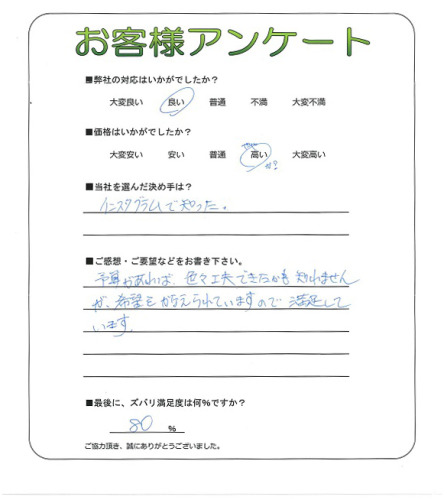 お客様アンケート
■弊社の対応はいかがでしたか？
大変良い 良い 普通 不満 大変不満
■価格はいかがでしたか？
大変安い 安い 普通 高い 大変高い
■当社を選んだ決め手は？
インスタグラムで知った。
■ご感想・ご要望などをお書き下さい。
予算があれば、色々工夫できたかも知れません
が、希望も叶えられていますので満足して
います。
■最後に、ズバリ満足度は何％ですか？
80 ％
ご協力頂き、誠にありがとうございました。